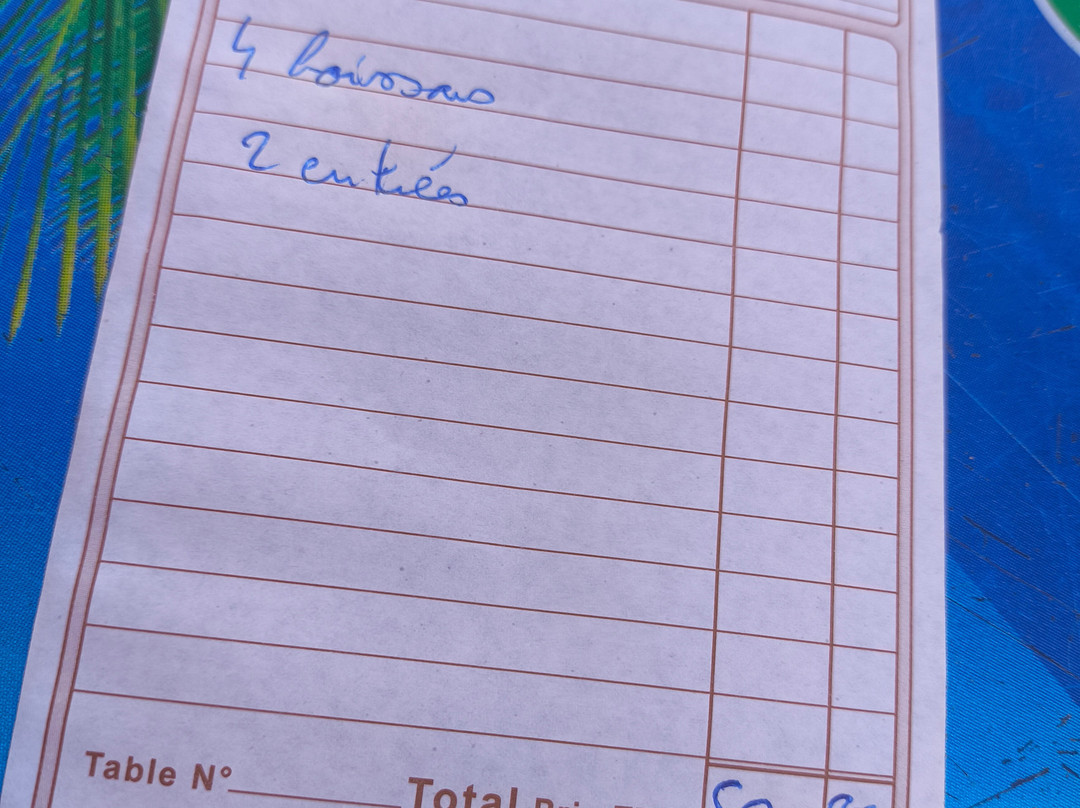 4 boissons
2 entrées
Table N°
Total